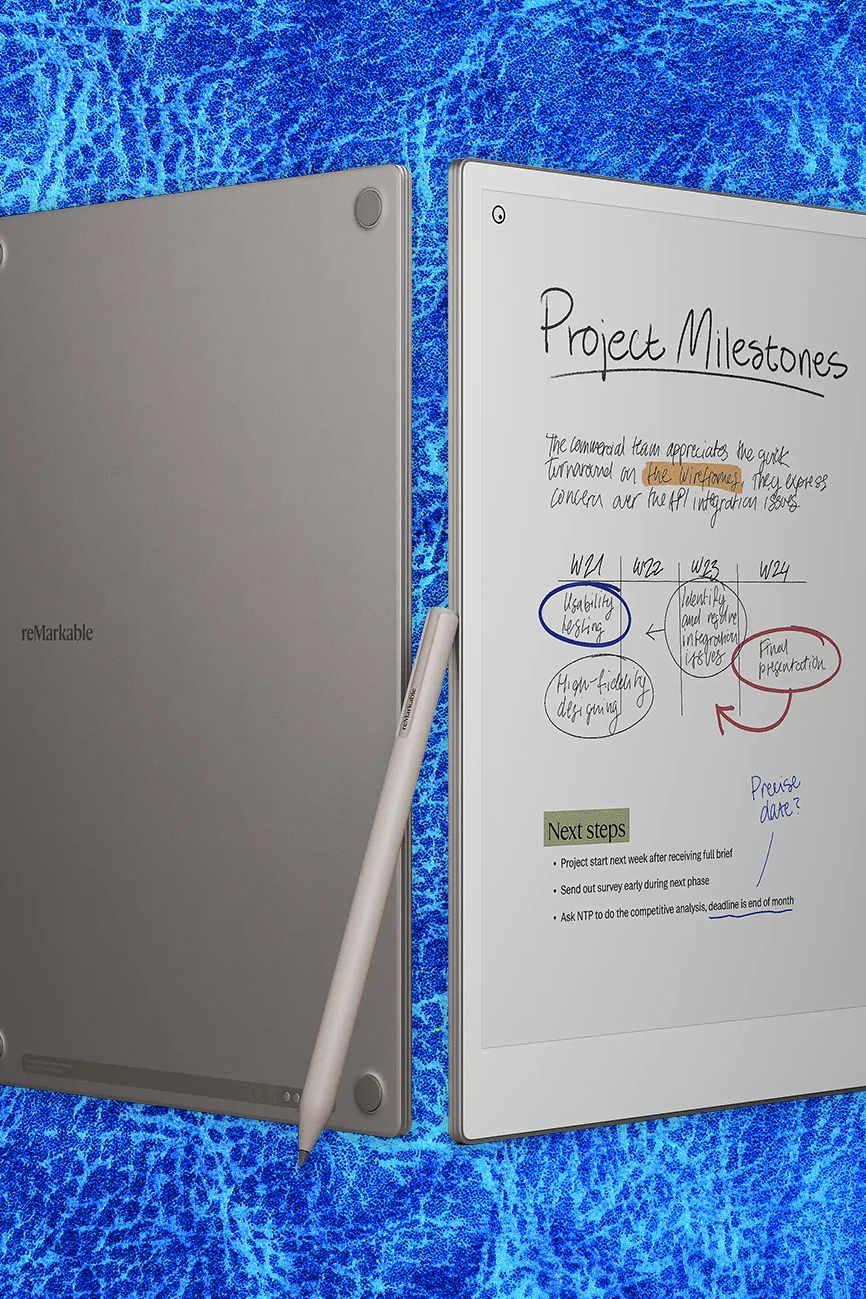 reMarkable
reMarkable
Project Milestones
The commercial team appreciates the quick
turnaround on the wireframes. They express
concern over the API integration issues
W21 W22 W23 W24
Usability
testing
Identify
and resolve
integration
issues
Final
presentation
High-fidelity
designing
Precise
date?
Next steps
• Project start next week after receiving full brief
• Send out survey early during next phase
• Ask NTP to do the competitive analysis, deadline is end of month